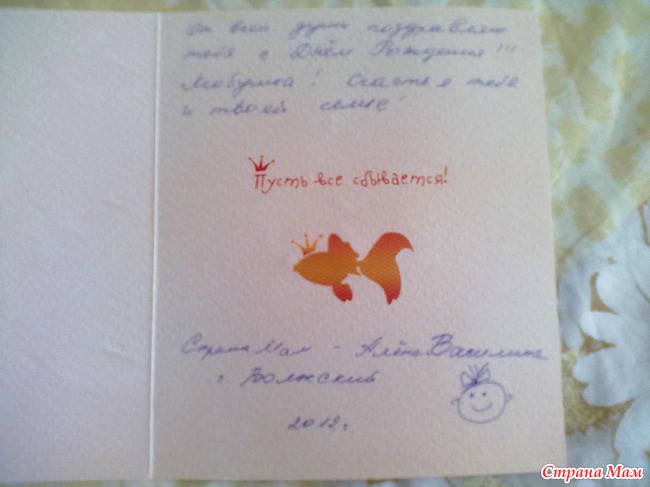 От всей души поздравляю
тебя с Днём Рождения!!!
Любушка! Счастья тебе
и твоей семье!
Пусть все сбывается!
Страна Мам - Алёна Василина
г. Волжский
2012 г.
Страна Мам